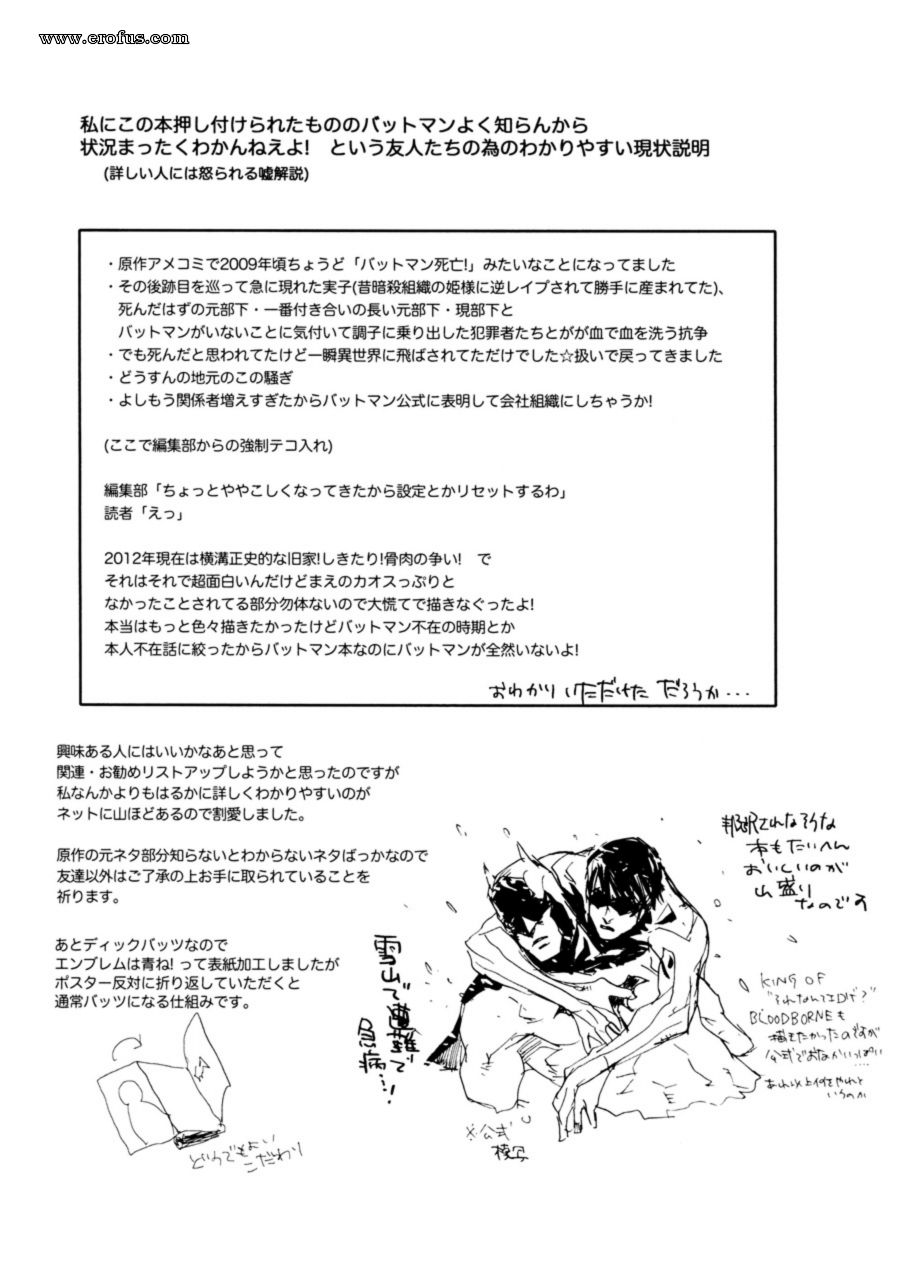 www.erofus.com
私にこの本押し付けられたもののバットマンよく知らんから
状況まったくわかんねえよ!　という友人たちの為のわかりやすい現状説明
(詳しい人には怒られる嘘解説)
・原作アメコミで2009年頃ちょうど「バットマン死亡!」みたいなことになってました
・その後跡目を巡って急に現れた実子(昔暗殺組織の姫様に逆レイプされて勝手に産まれてた)、
死んだはずの元部下・一番付き合いの長い元部下・現部下と
バットマンがいないことに気付いて調子に乗り出した犯罪者たちとがが血で血を洗う抗争
・でも死んだと思われてたけど一瞬異世界に飛ばされてただけでした☆扱いで戻ってきました
・どうすんの地元のこの騒ぎ
・よしもう関係者増えすぎたからバットマン公式に表明して会社組織にしちゃうか!
(ここで編集部からの強制テコ入れ)
編集部「ちょっとややこしくなってきたから設定とかリセットするわ」
読者「えっ」
2012年現在は横溝正史的な旧家!しきたり!骨肉の争い!　で
それはそれで超面白いんだけどまえのカオスっぷりと
なかったことされてる部分勿体ないので大慌てで描きなぐったよ!
本当はもっと色々描きたかったけどバットマン不在の時期とか
本人不在話に絞ったからバットマン本なのにバットマンが全然いないよ!
おわかりいただけただろうか・・・
興味ある人にはいいかなあと思って
関連・お勧めリストアップしようかと思ったのですが
私なんかよりもはるかに詳しくわかりやすいのが
ネットに山ほどあるので割愛しました。
原作の元ネタ部分知らないとわからないネタばっかなので
友達以外はご了承の上お手に取られていることを
祈ります。
あとディックバッツなので
エンブレムは青ね! って表紙加工しましたが
ポスター反対に折り返していただくと
通常バッツになる仕組みです。
どうでもよい
こだわり
邦訳されなそうな
本もたいへん
おいしいのが
山盛り
なのです
雪山で遭難して
病…!
※公式
KING OF
"それなんてエロゲ?"
BLOODBORNEも
描きたかったのですが
公式でおなかいっぱい
あれ以上何をやれと
いうのか